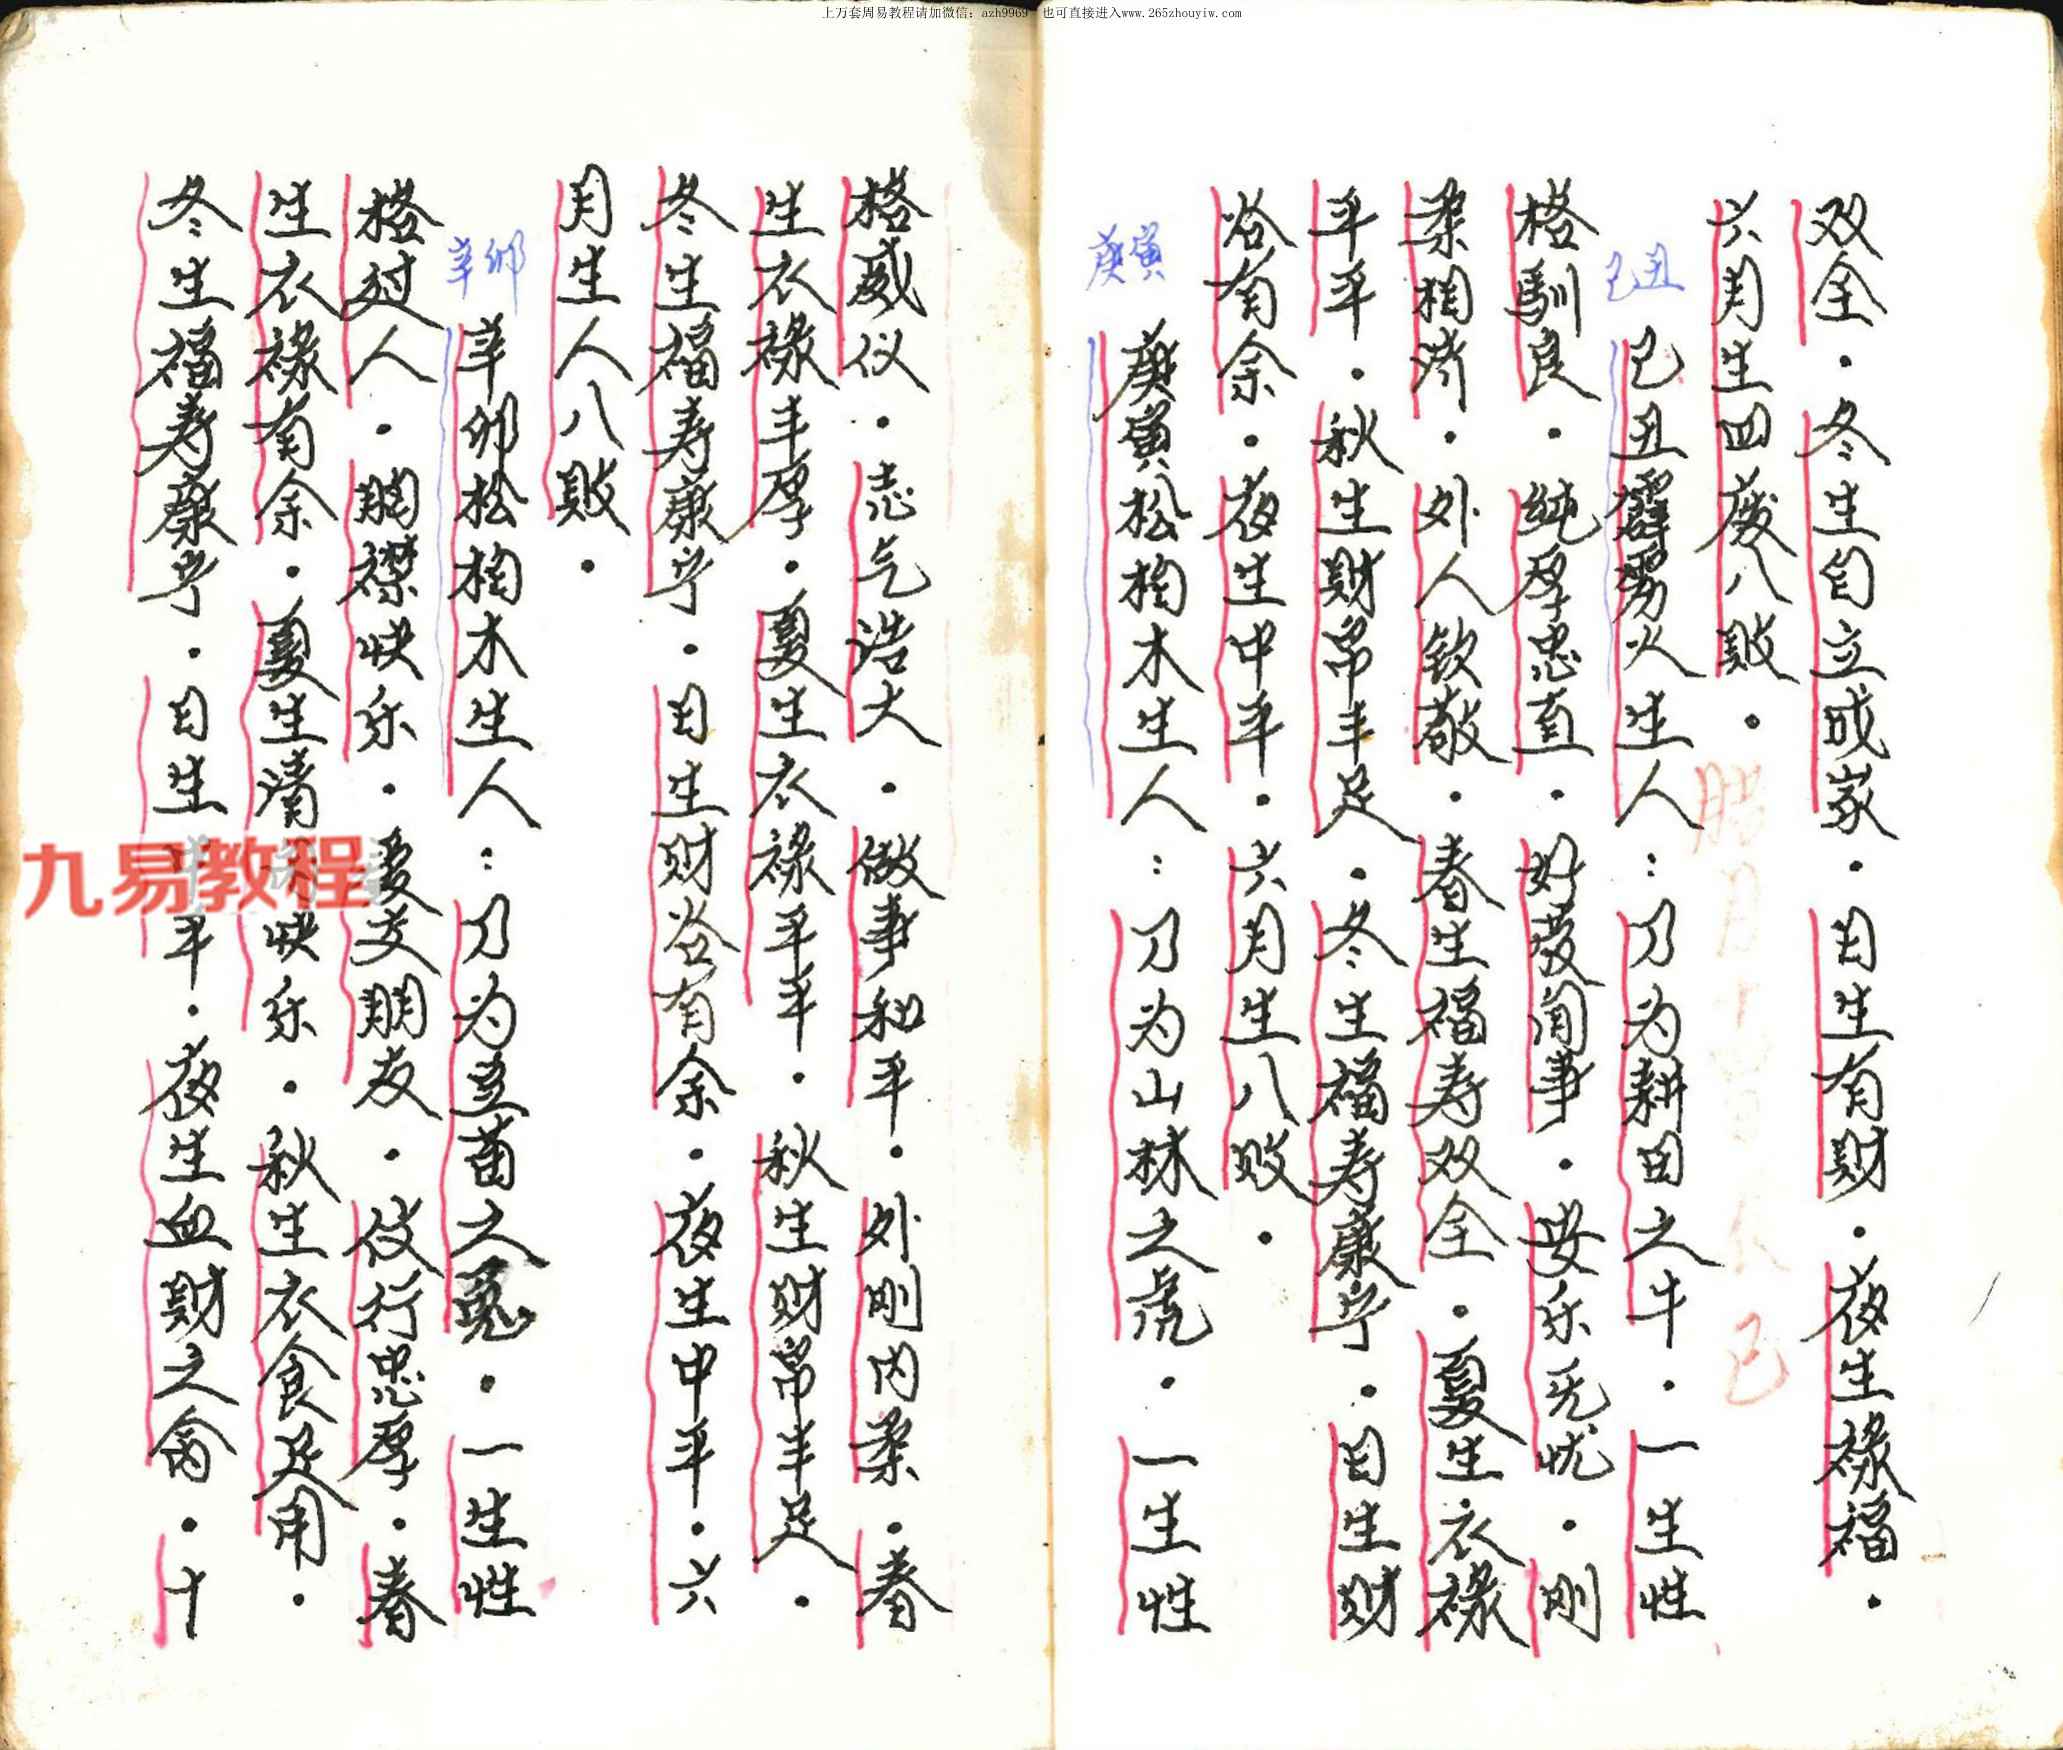 上万套周易教程请加微信：azh9969　也可直接进入www.265zhouyiw.com
双全．冬生自立成家．日生有财．夜生禄福．
六月生四废八败．
己丑
己丑霹雳火生人：乃为耕田之牛．一生性
格驯良．纯厚忠直．好发闲事．安乐无忧．刚
柔相济．外人钦敬．春生福寿双全．夏生衣禄
平平．秋生财帛丰足．冬生福寿康宁．日生财
谷有余．夜生中平．六月生八败．
庚寅
庚寅松柏木生人：乃为山林之虎．一生性
格威仪．志气浩大．做事和平．外刚内柔．春
生衣禄丰厚．夏生衣禄平平．秋生财帛丰足．
冬生福寿康宁．日生财谷有余．夜生中平．六
月生人八败．
辛卯
辛卯松柏木生人：乃为 之兔．一生性
格过人．胸襟快乐．爱交朋友．使行忠厚．春
生衣禄有余．夏生清 快乐．秋生衣食足用．
冬生福寿康宁．日生 平．夜生 财之命．十
九易教程